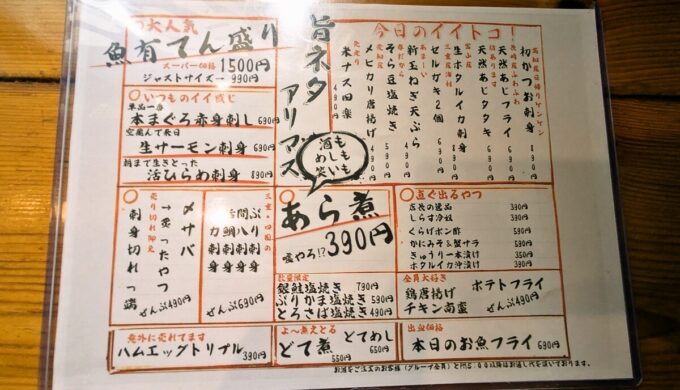 大人気
魚有てん盛り
スーパーサイズ 1500円
ジャストサイズ→ 990円
いつものイイ感じ
単品一番
本まぐろ赤身刺し 690円
空飛んで来日
生サーモン刺身 690円
朝まで生きとった
活ひらめ刺身 890円
旨ネタアリマス
酒もめしも笑いも
今日のイイトコ！
初かつお刺身 890円
天然あじフライ
天然あじタタキ
生ホタルイカ刺身
セルガキ2個
新玉ねぎ天ぷら
そら豆塩焼き
メヒカリ唐揚げ
米ナス田楽 490円
売り切れ御免
刺身切れっ端
→炙ったやつ
〆サバ
ぜんぶ490円
三重・四国の
ぶり刺身
間八刺身
活〆鯛刺身
カツオ刺身
ぜんぶ690円
あら煮
嘘やろ!? 390円
直ぐ出るやつ
店長の逸品 390円
しらす冷奴 350円
くらげポン酢 590円
かにみそ&蟹サラ 590円
きゅうり一本漬け 350円
ホタルイカ沖漬け 390円
数量限定
銀鮭塩焼き 790円
ぶりかま塩焼き 590円
とろさば塩焼き 490円
全員大好き
鶏唐揚げ ポテトフライ
チキン南蛮 ぜんぶ490円
意外に売れてます
ハムエッグトリプル 390円
よ～煮えとる
どて煮 550円
どてめし 650円
出血価格
本日のお魚フライ 690円